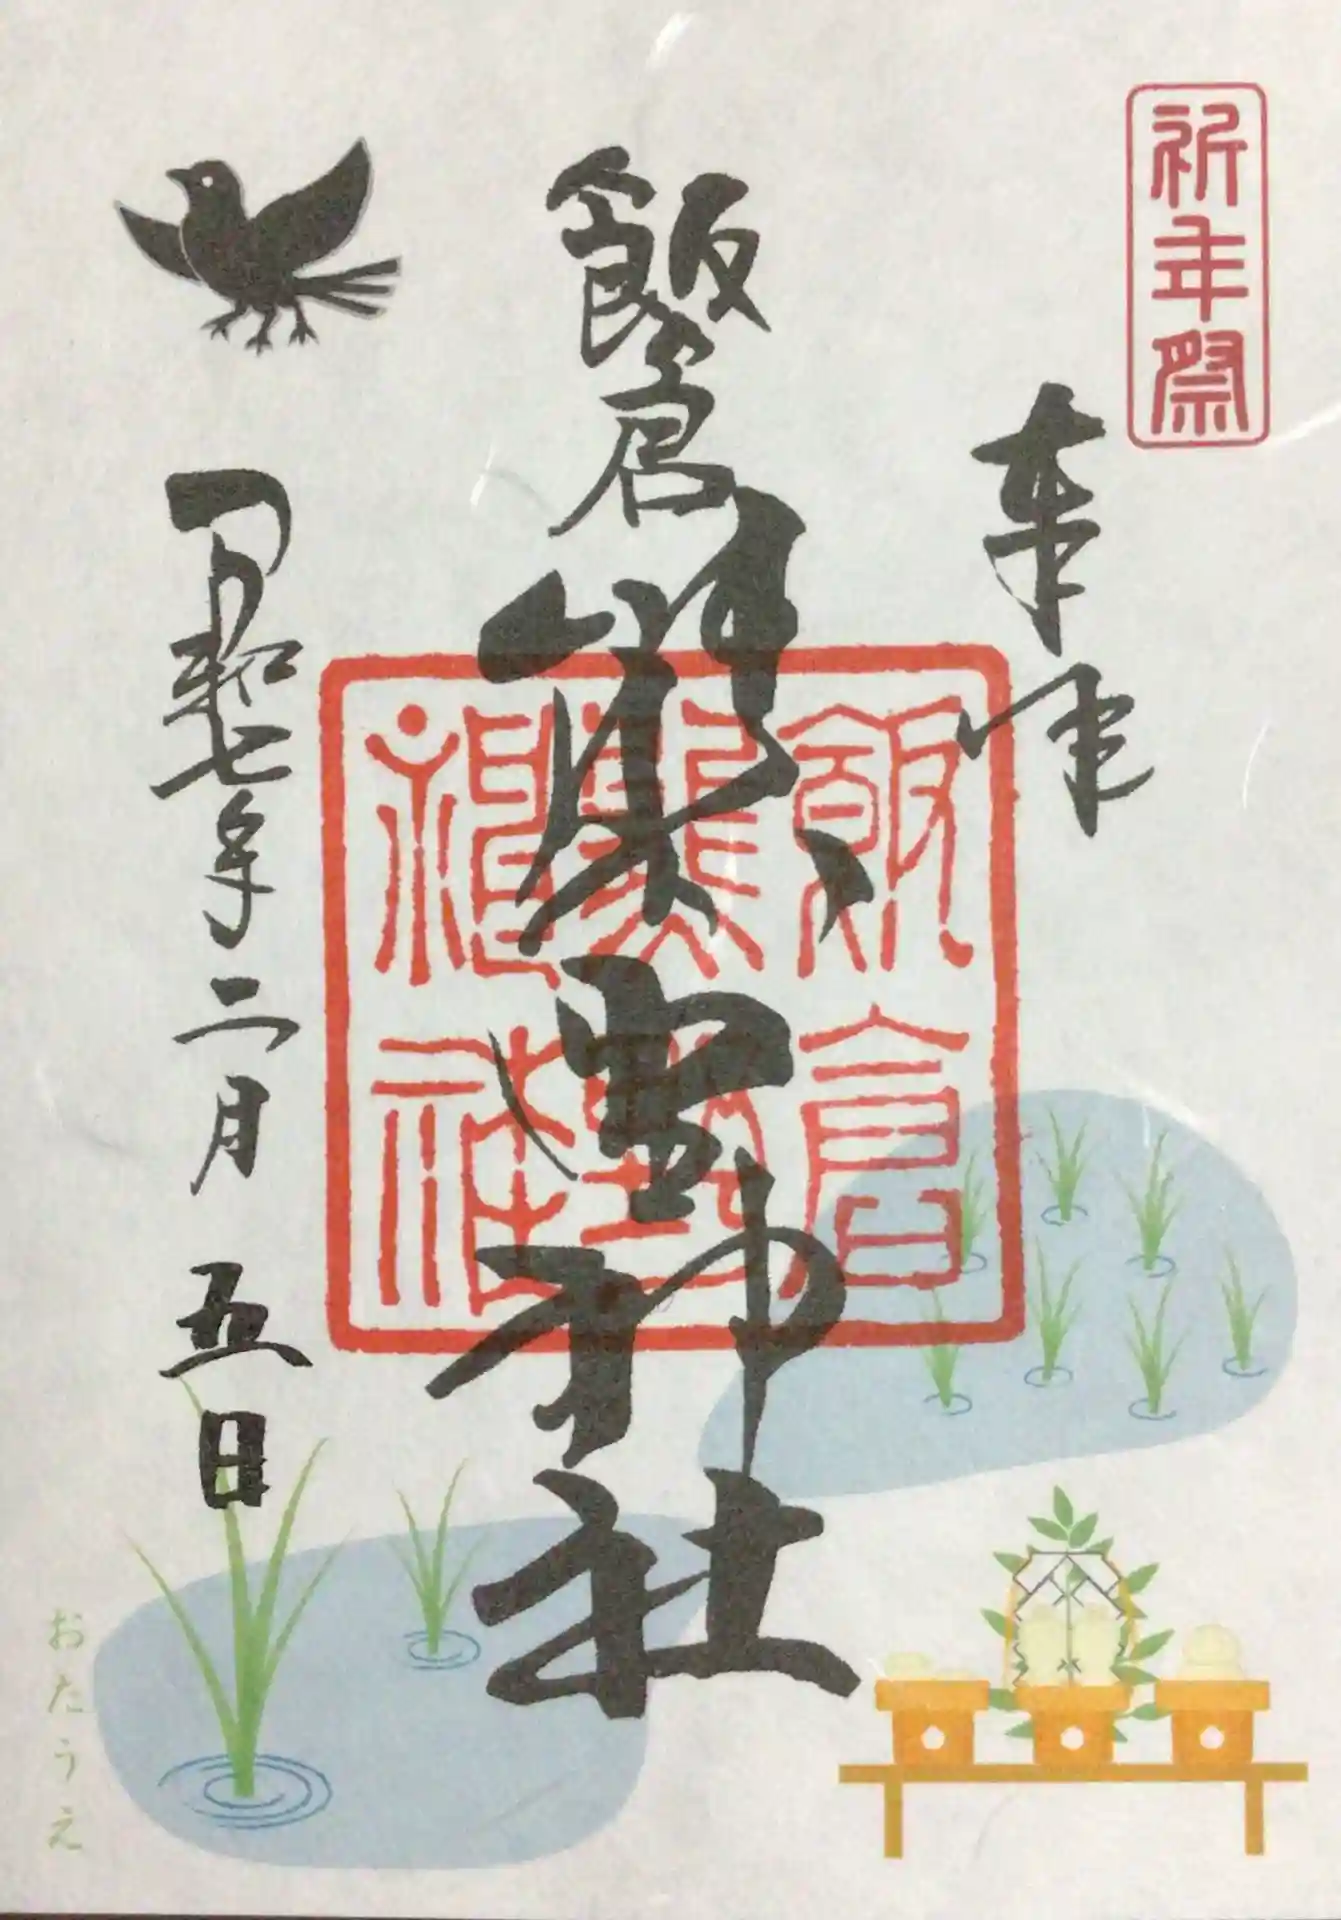 祈年祭
奉拝
飯倉
熊野神社
飯倉
熊野
神社
令和七年二月五日
おたうえ